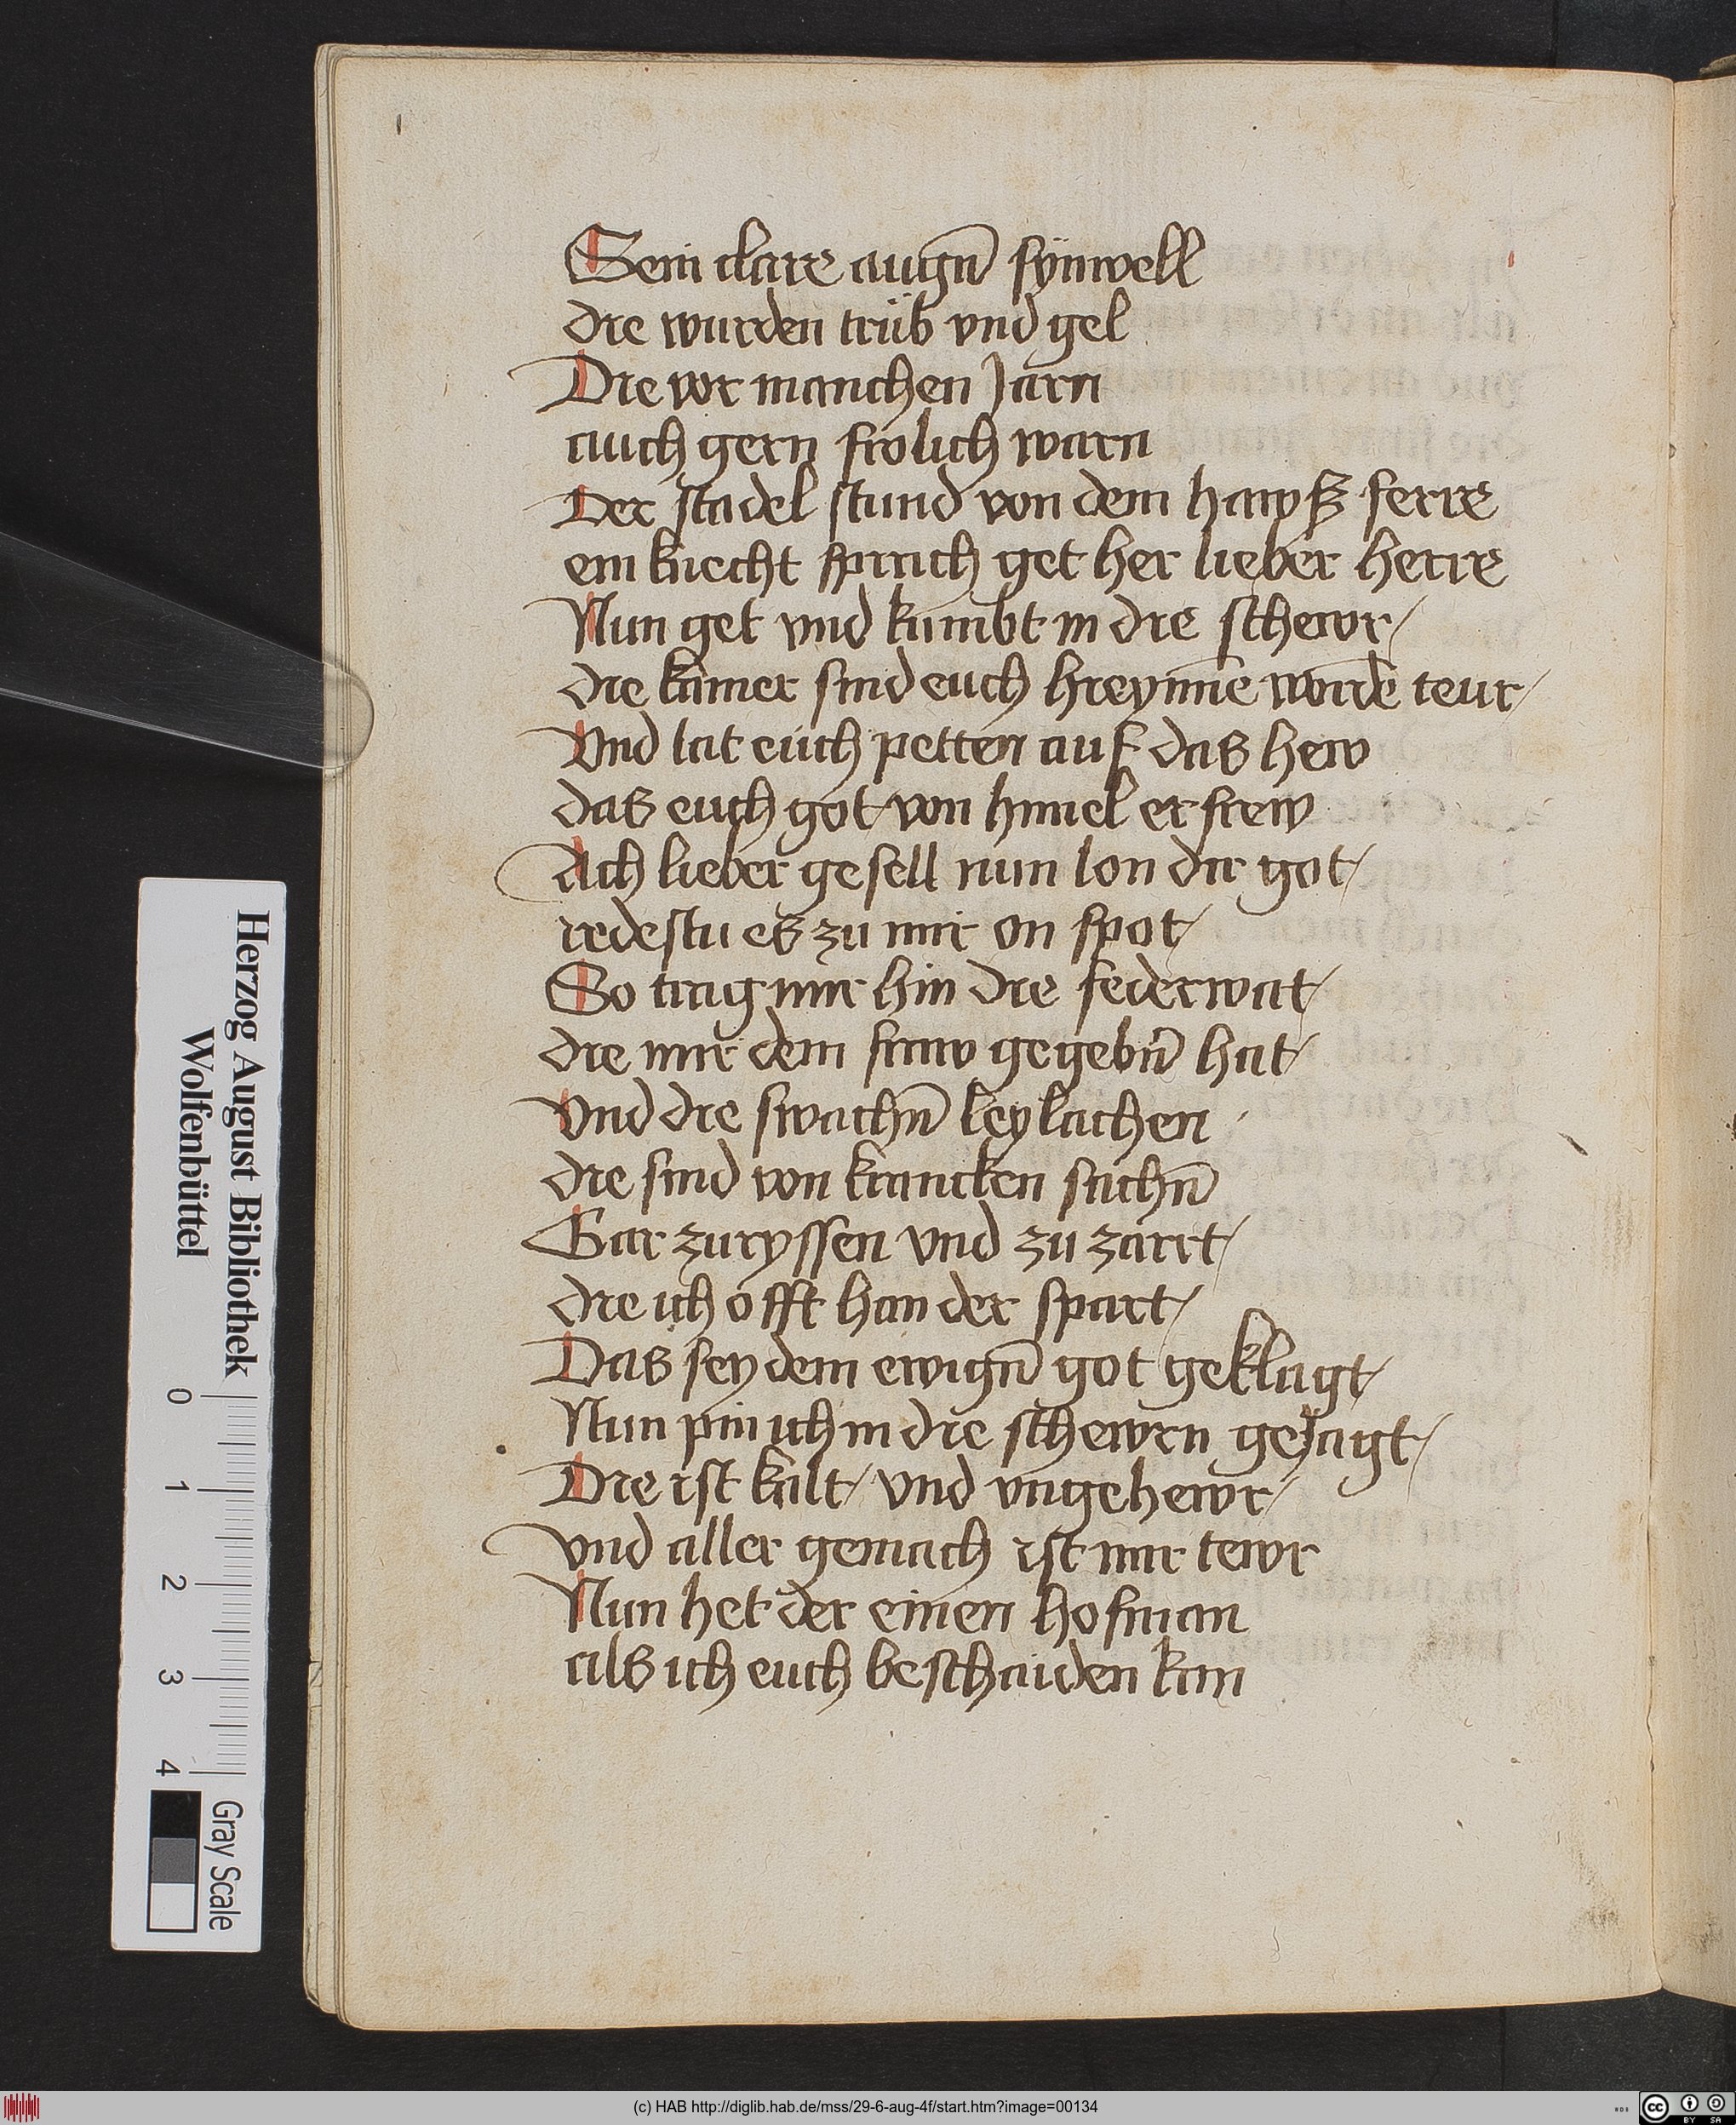 Sein clare augn̄ synwell
die wurden trüb vnd gel
Die vor manchen Jarn
auch gern frolich warn
Der stadel stund von dem hawß ferre
ein knecht sprach get her lieber herre
Nun get vnd kumbt in die schewr
die kamer sind euch hreynn̄e wordē teur
Vnd lat euch petten auf das hew
das euch got von himel erfrew
Ach lieber gesell nun lon dir got
redestu es zu mir on spot
So trag mir hin die federwat
die mir dein fraw gegebn̄ hat
Vnd die swachn̄ leylachen
die sind von krancken sachn̄
Gar zuryssen vnd zu zarrt
die ich offt han der spart
Das sey dem ewign̄ got geklagt
Nun pin ich in die schewrn gejagt
Die ist kalt vnd vngehewr
vnd aller gemach ist mir tewr
Nun het der einen hofman
als ich euch beschaiden kan
Herzog August Bibliothek
Wolfenbüttel
0 1 2 3 4
Gray Scale
(c) HAB http://diglib.hab.de/mss/29-6-aug-4f/start.htm?image=00134